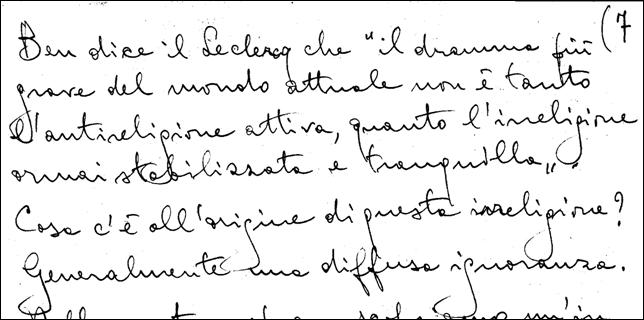 Ben dice il Leclercq che "il dramma più (7
grave del mondo attuale non è tanto
l'antireligione attiva, quanto l'irreligione
ormai stabilizzata e tranquilla".
Cosa c'è all'origine di questa irreligione?
Generalmente una diffusa ignoranza.